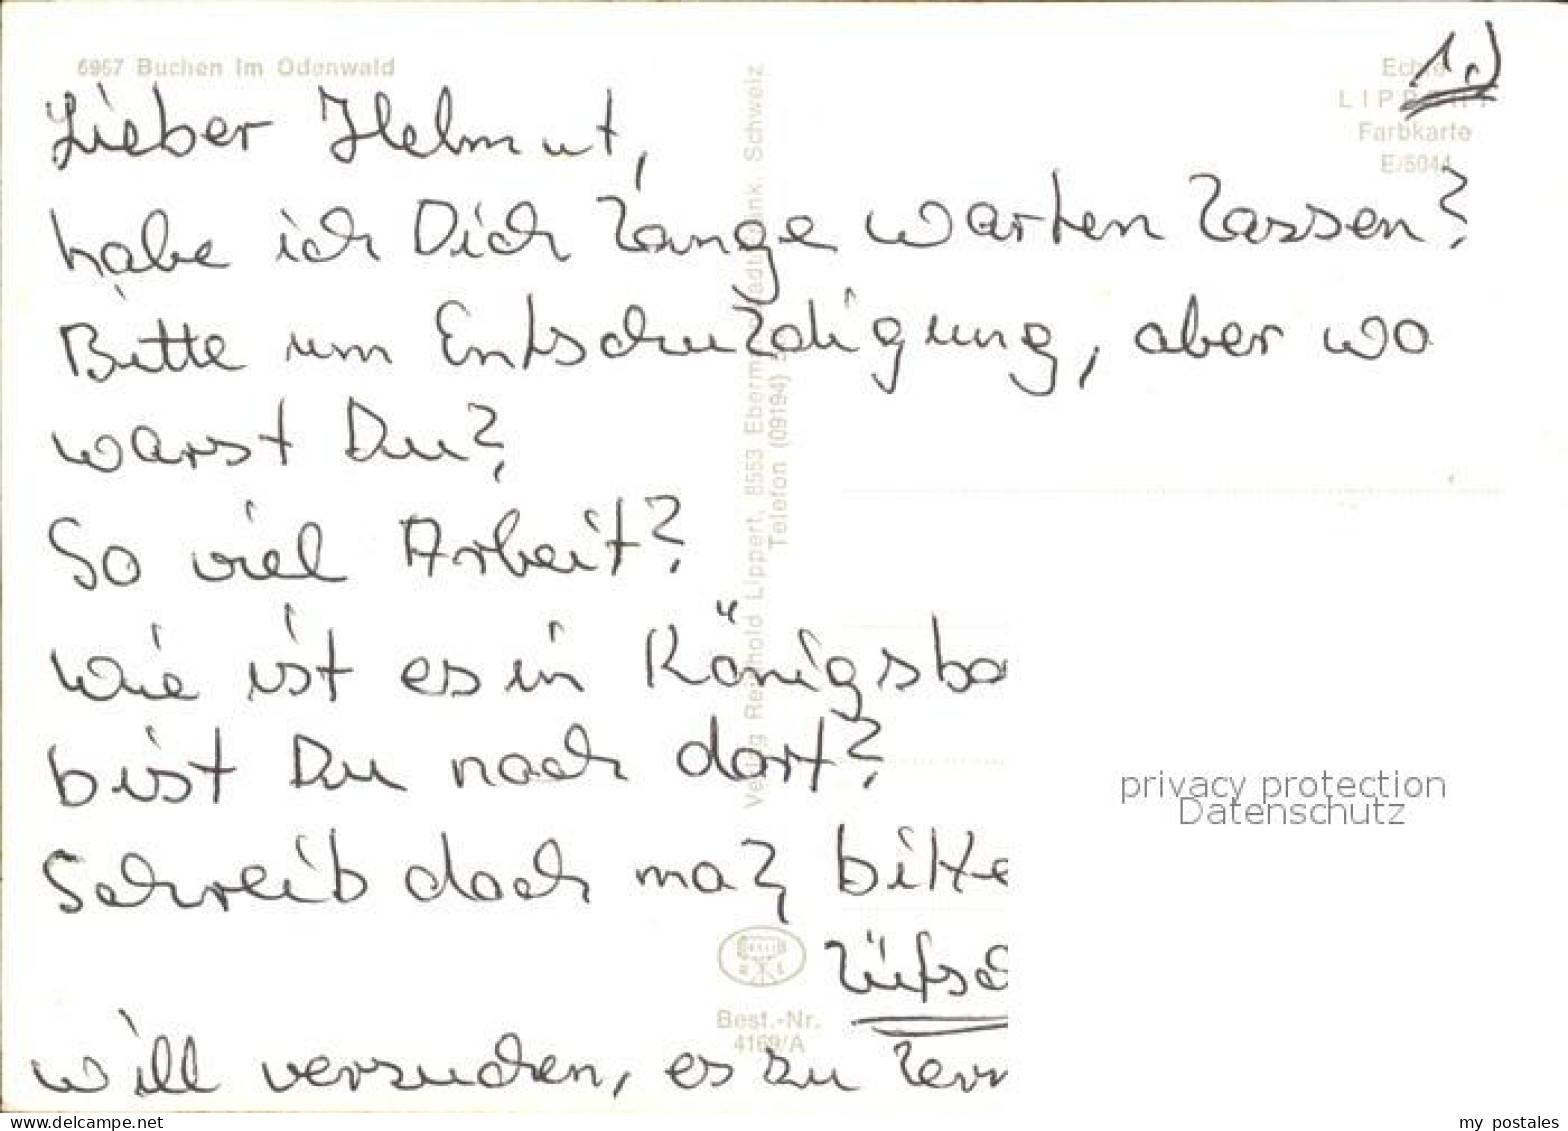 6967 Buchen im Odenwald
1.)
Echte
LIPPERT
Farbkarte
E/5044
Lieber Helmut,
habe ich Dich lange warten lassen?
Bitte um Entschuldigung, aber wo
warst Du?
So viel Arbeit?
Wie ist es in Königsba
bist Du noch dort?
Schreib doch mal, bitte
will versuchen, es zu lern
Verlag Reinhold Lippert, 8553 Eberm adt Fränk. Schweiz
Telefon (09194)
Best.-Nr.
4169/A
privacy protection
Datenschutz
www.delcampe.net
my_postales